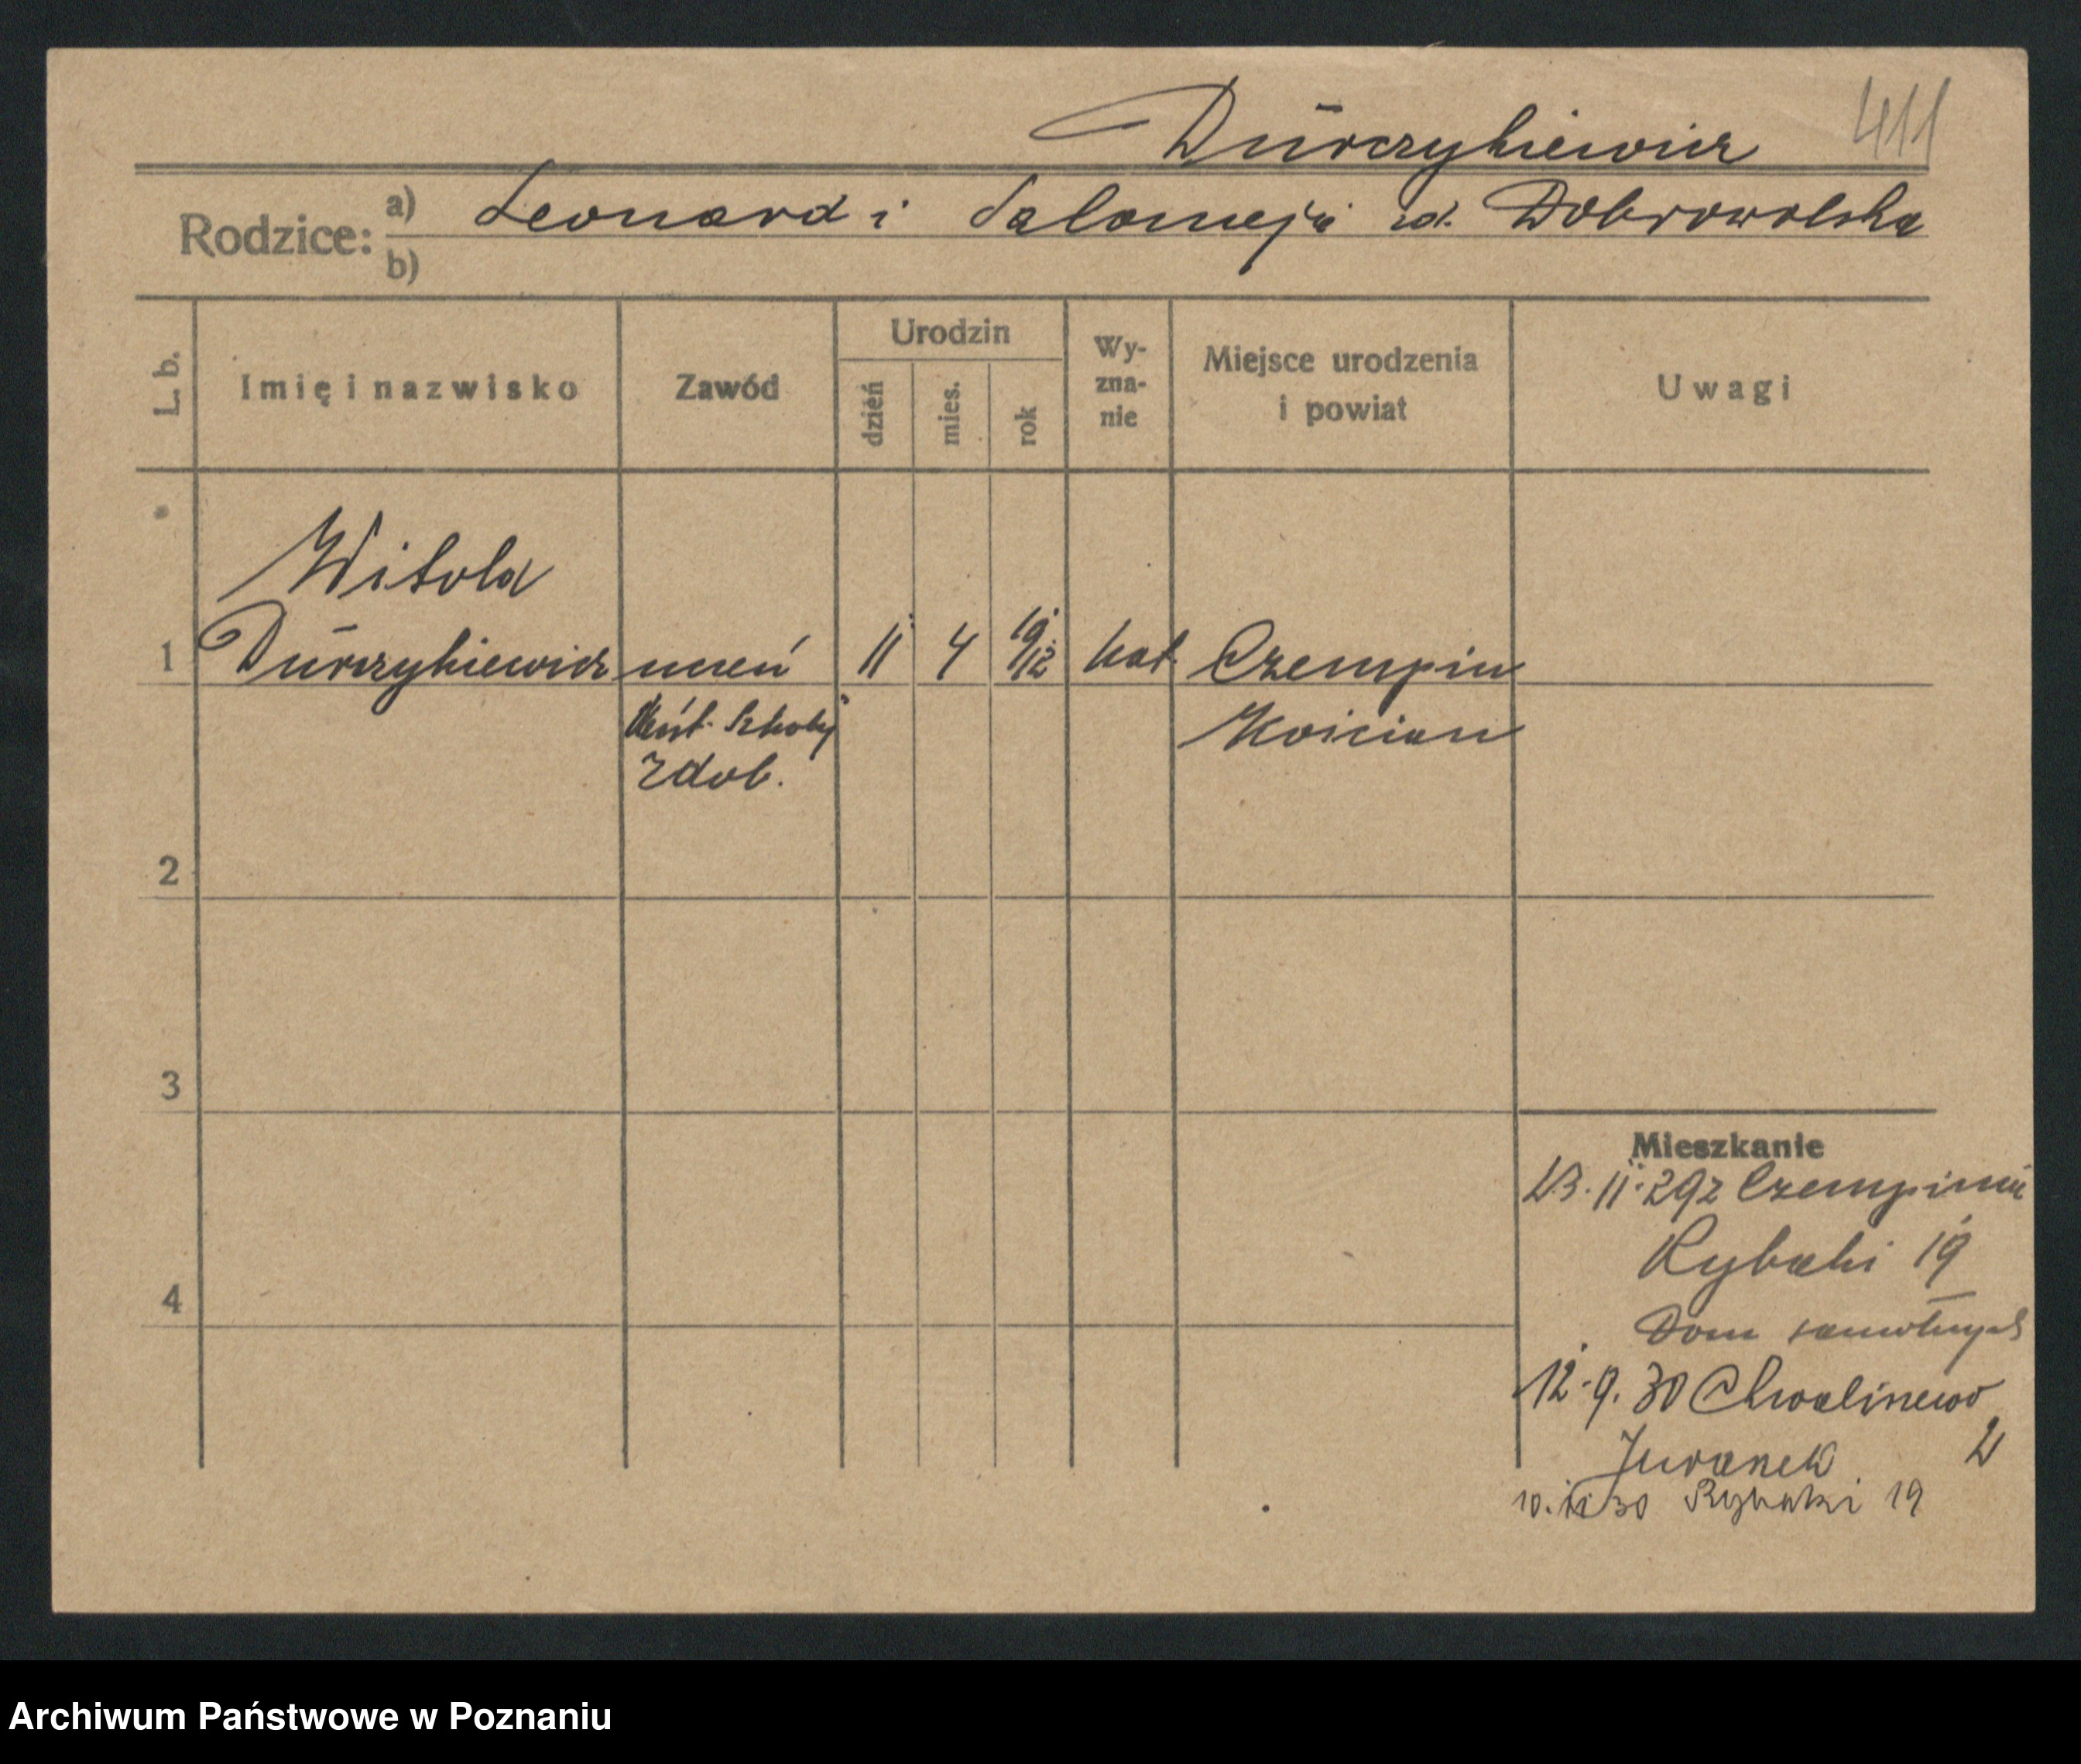 Durczykiewicz 411
Rodzice: a) Leonard i Salomeja zd. Dobrowolska
b)
L. b. Imię i nazwisko Zawód Urodzin dzień mies. rok Wy-zna-nie Miejsce urodzenia i powiat Uwagi
Witold
1 Durczykiewicz uczeń 11 4 1912 kat. Czempin
Państ. Szkoły Kościan
Zdob.
2
3
Mieszkanie
23.11.29 z Czempinia
Rybaki 19
4
Dom samotnych
12.9.30 Chwaliszewo
Juranek 2
10.11 30 Rybaki 19
Archiwum Państwowe w Poznaniu